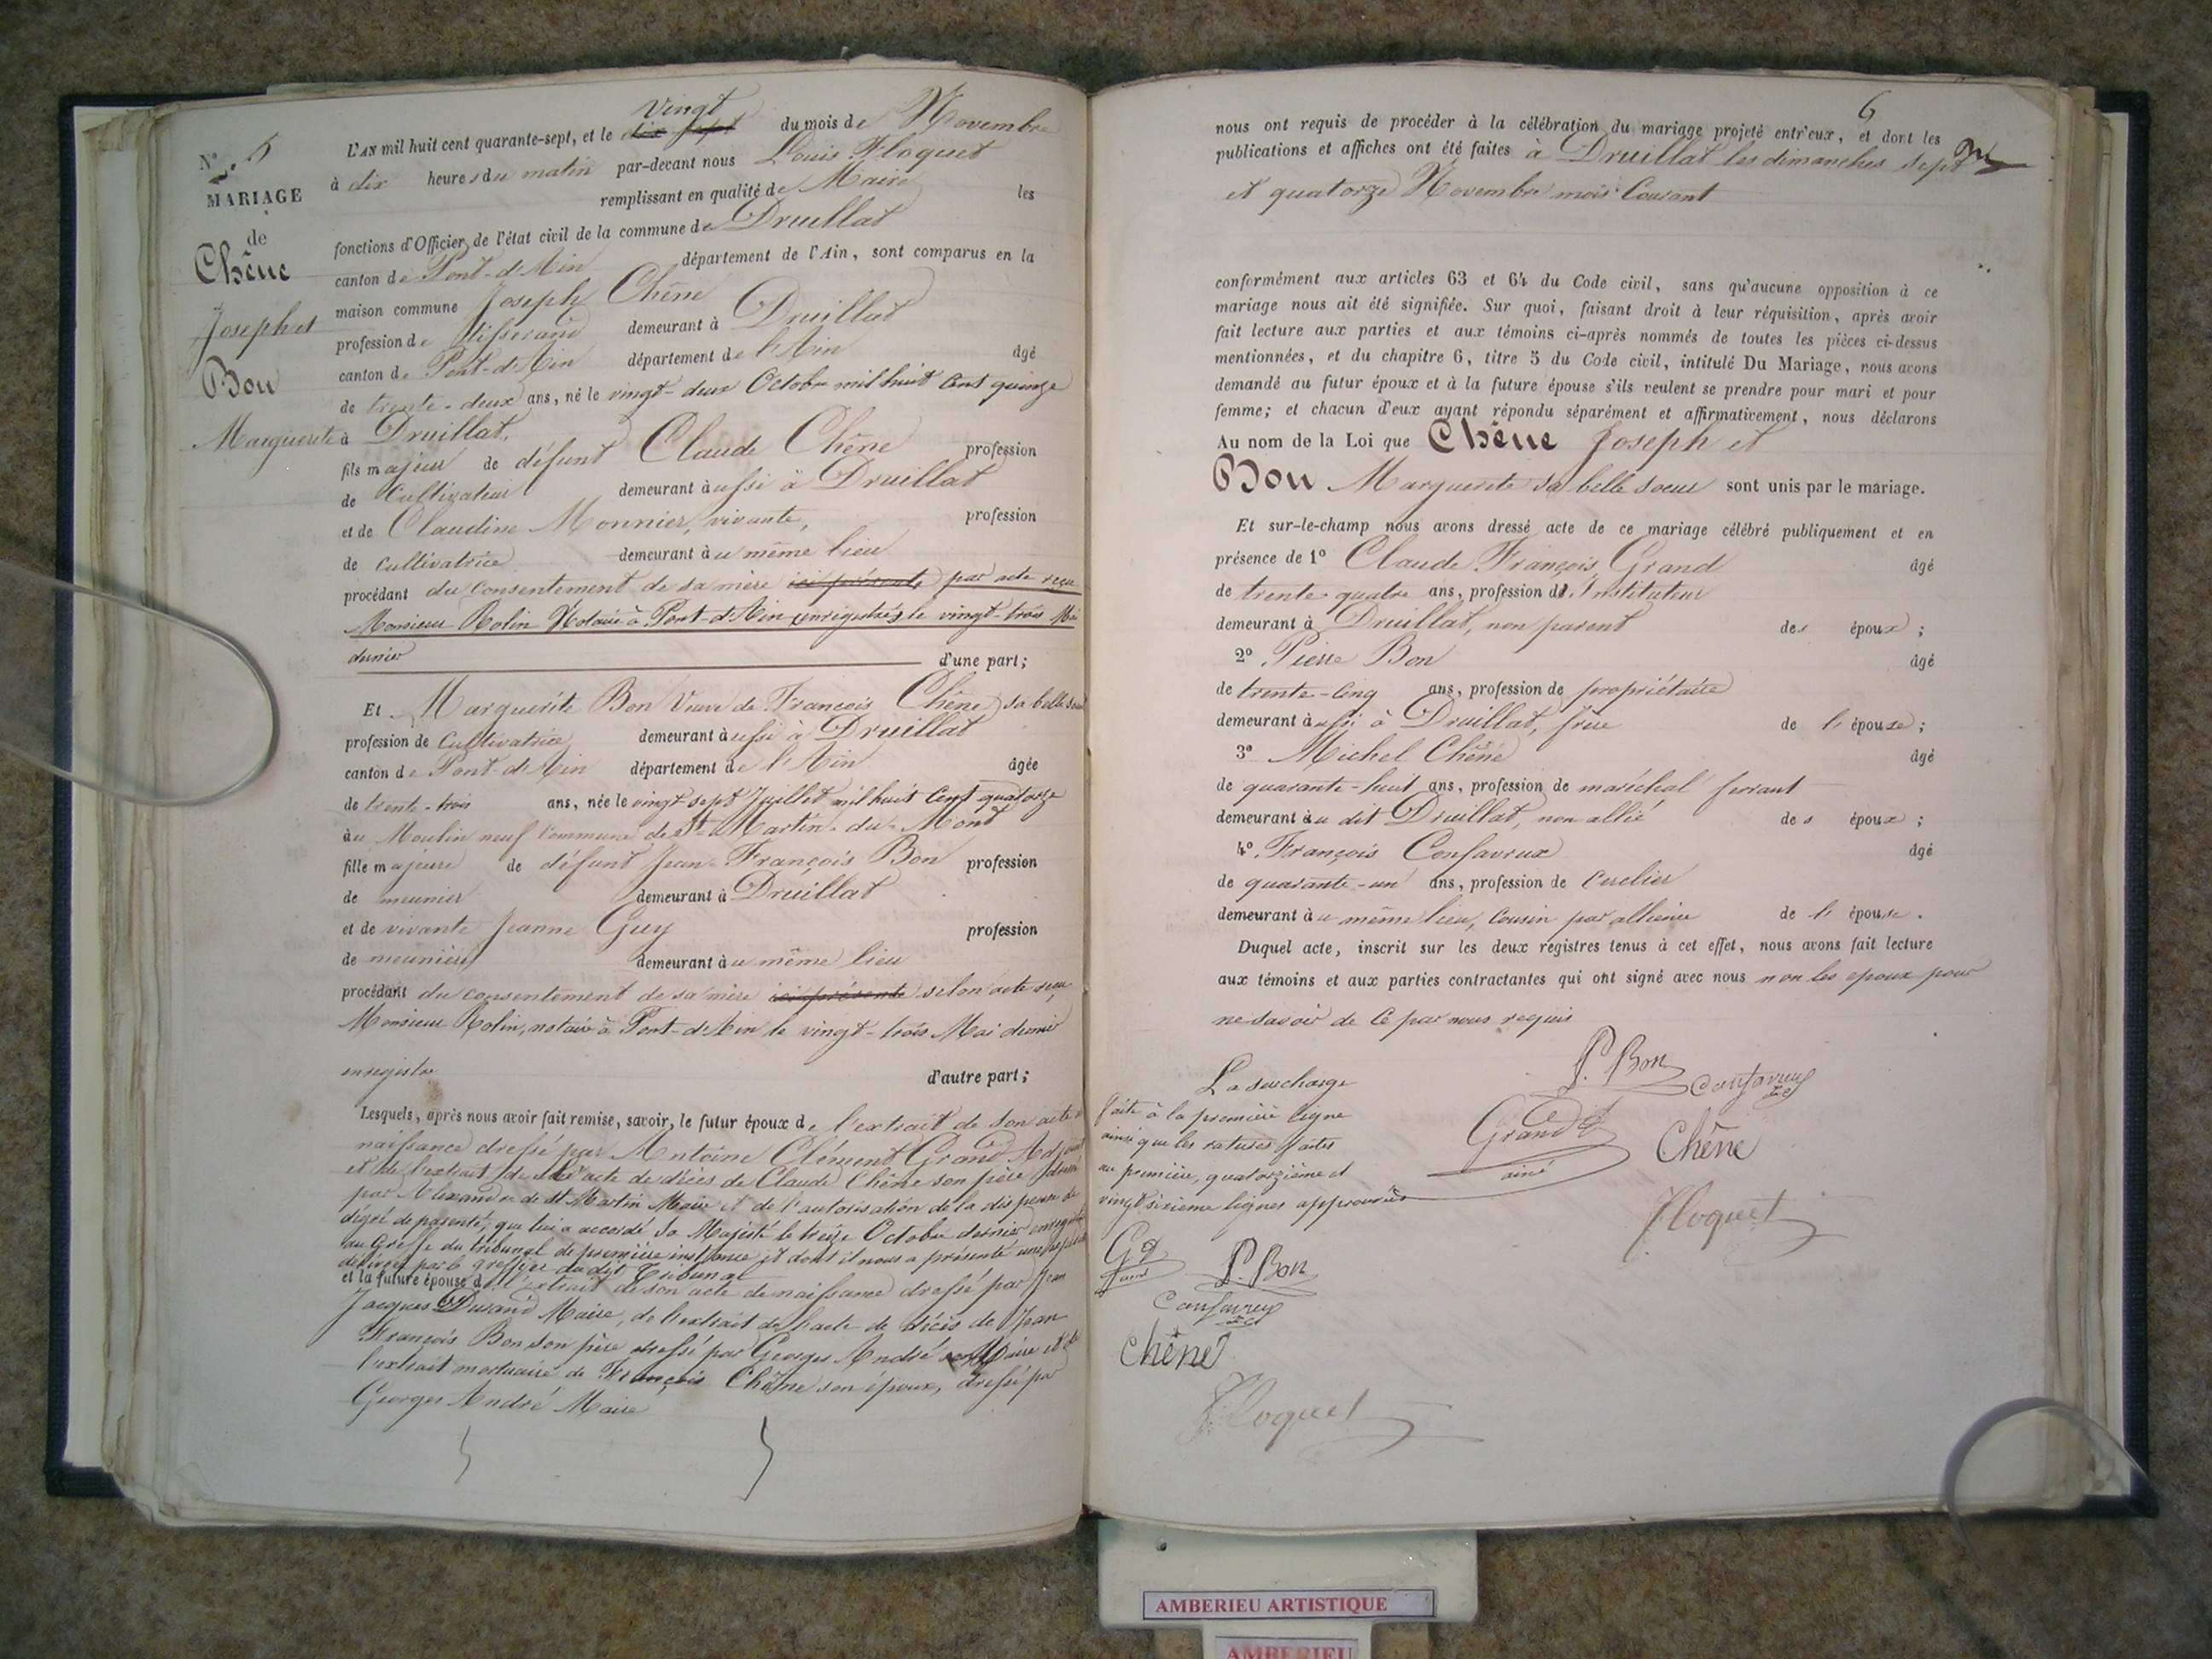 N.º 5
MARIAGE
de
Chêne
Joseph et
Bon
Marguerite
vingt
L'AN mil huit cent quarante-sept, et le dix sept du mois de Novembre
à dix heures du matin par-devant nous Louis Floquet
remplissant en qualité de Maire les
fonctions d'Officier de l'état civil de la commune de Druillat
canton de Pont-d'Ain département de l'Ain, sont comparus en la
maison commune Joseph Chêne
profession de tisserand demeurant à Druillat
canton de Pont-d'Ain département de l'Ain âgé
de trente-deux ans, né le vingt-deux Octobre mil huit cent quinze
à Druillat,
fils majeur de défunt Claude Chêne profession
de Cultivateur demeurant aussi à Druillat
et de Claudine Monnier, vivante, profession
de Cultivatrice demeurant au même lieu
procédant du consentement de sa mère ici présente par acte reçu
Monsieur Rolin Notaire à Pont-d'Ain enregistré le vingt-trois Mai
dernier
d'une part;
Et Marguerite Bon Veuve de François Chêne, sa belle soeur
profession de Cultivatrice demeurant aussi à Druillat
canton de Pont-d'Ain département de l'Ain âgée
de trente-trois ans, née le vingt sept Juillet mil huit cent quatorze
au Moulin neuf Commune de St Martin-du-Mont
fille majeure de défunt Jean-François Bon profession
de meunier demeurant à Druillat
et de vivante Jeanne Guy profession
de meunière demeurant au même lieu
procédant du consentement de sa mère ici présente selon acte reçu
Monsieur Rolin, notaire à Pont-d'Ain le vingt-trois Mai dernier
enregistré
d'autre part;
Lesquels, après nous avoir fait remise, savoir, le futur époux de l'extrait de son acte de
naissance dressé par Antoine Clément Grand Adjoint
et de l'extrait de l'acte de décès de Claude Chêne son père dressé
par Alexandre de St Martin Maire et de l'autorisation de la dispense de
dégré de parenté, que lui a accordé Sa Majesté le treize Octobre dernier enregistré
au Greffe du tribunal de première instance et dont il nous a présenté une
délivrée par le greffier du dit Tribunal
et la future épouse de l'extrait de son acte de naissance dressé par Jean
Jacques Durand Maire, de l'extrait de l'acte de décès de Jean
François Bon son père dressé par Georges André Maire et de
l'extrait mortuaire de François Chêne son époux, dressé par
Georges André Maire
6
nous ont requis de procéder à la célébration du mariage projeté entr'eux, et dont les
publications et affiches ont été faites à Druillat les dimanches sept
et quatorze Novembre mois Courant
conformément aux articles 63 et 64 du Code civil, sans qu'aucune opposition à ce
mariage nous ait été signifiée. Sur quoi, faisant droit à leur réquisition, après avoir
fait lecture aux parties et aux témoins ci-après nommés de toutes les pièces ci-dessus
mentionnées, et du chapitre 6, titre 5 du Code civil, intitulé Du Mariage, nous avons
demandé au futur époux et à la future épouse s'ils veulent se prendre pour mari et pour
femme; et chacun d'eux ayant répondu séparément et affirmativement, nous déclarons
Au nom de la Loi que Chêne Joseph et
Bon Marguerite sa belle soeur sont unis par le mariage.
Et sur-le-champ nous avons dressé acte de ce mariage célébré publiquement et en
présence de 1º Claude François Grand âgé
de trente-quatre ans, profession d'Instituteur
demeurant à Druillat, non parent des époux;
2º Pierre Bon âgé
de trente-cinq ans, profession de propriétaire
demeurant aussi à Druillat, frère de l'épouse;
3º Michel Chêne âgé
de quarante-huit ans, profession de maréchal ferrant
demeurant au dit Druillat, non allié des époux;
4º François Confavreux âgé
de quarante-un ans, profession de Cerclier
demeurant au même lieu, Cousin par alliance de l'épouse.
Duquel acte, inscrit sur les deux registres tenus à cet effet, nous avons fait lecture
aux témoins et aux parties contractantes qui ont signé avec nous non les epoux pour
ne savoir de ce par nous requis
La surcharge
faite à la première ligne
ainsi que les ratures faites
au première, quatorzième et
vingt sixième lignes approuvées
P. Bon
Confavreux
Grand
ainé
Chêne
Floquet
Gd
P. Bon
Confavreux
Chêne
Floquet
AMBERIEU ARTISTIQUE
AMBERIEU